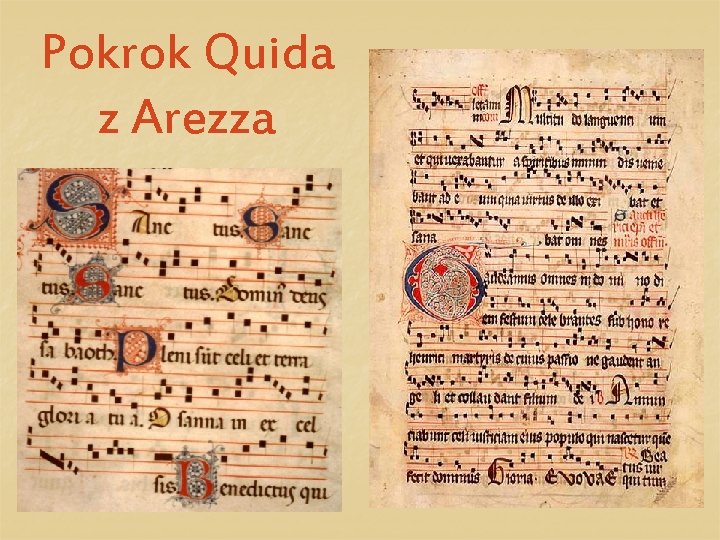 Pokrok Quida
z Arezza
Sanc tus. Sanc
tus. Sanc tus. Domin deus
sa baoth. Pleni sūt celi et terra
glori a tu a. O sanna in ex cel
sis Benedictus qui
off
Multitu do languenti um
et qui vexabantur a spiritibus inmun dis venie
bant ad e um quia virtus de illo exi bat et
sana bat om nes
Gaudeamus omnes in do mi no di
em festum cele brantes sub hono re
henrici martyris de cuius passio ne gaudent an
ge li et collau dant filium de i
ciabunt celi iusticiam eius populo qui nascetur que
Bea
fecit dominus Gloria. EVOVAE tus vir
qui tim